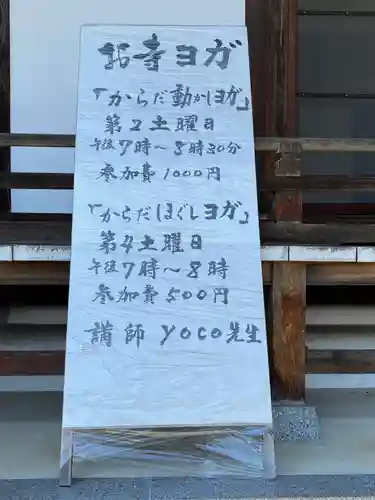 お寺ヨガ
「からだ動かしヨガ」
第2土曜日
午後7時～8時30分
参加費1000円
「からだほぐしヨガ」
第4土曜日
午後7時～8時
参加費500円
講師 yoco先生